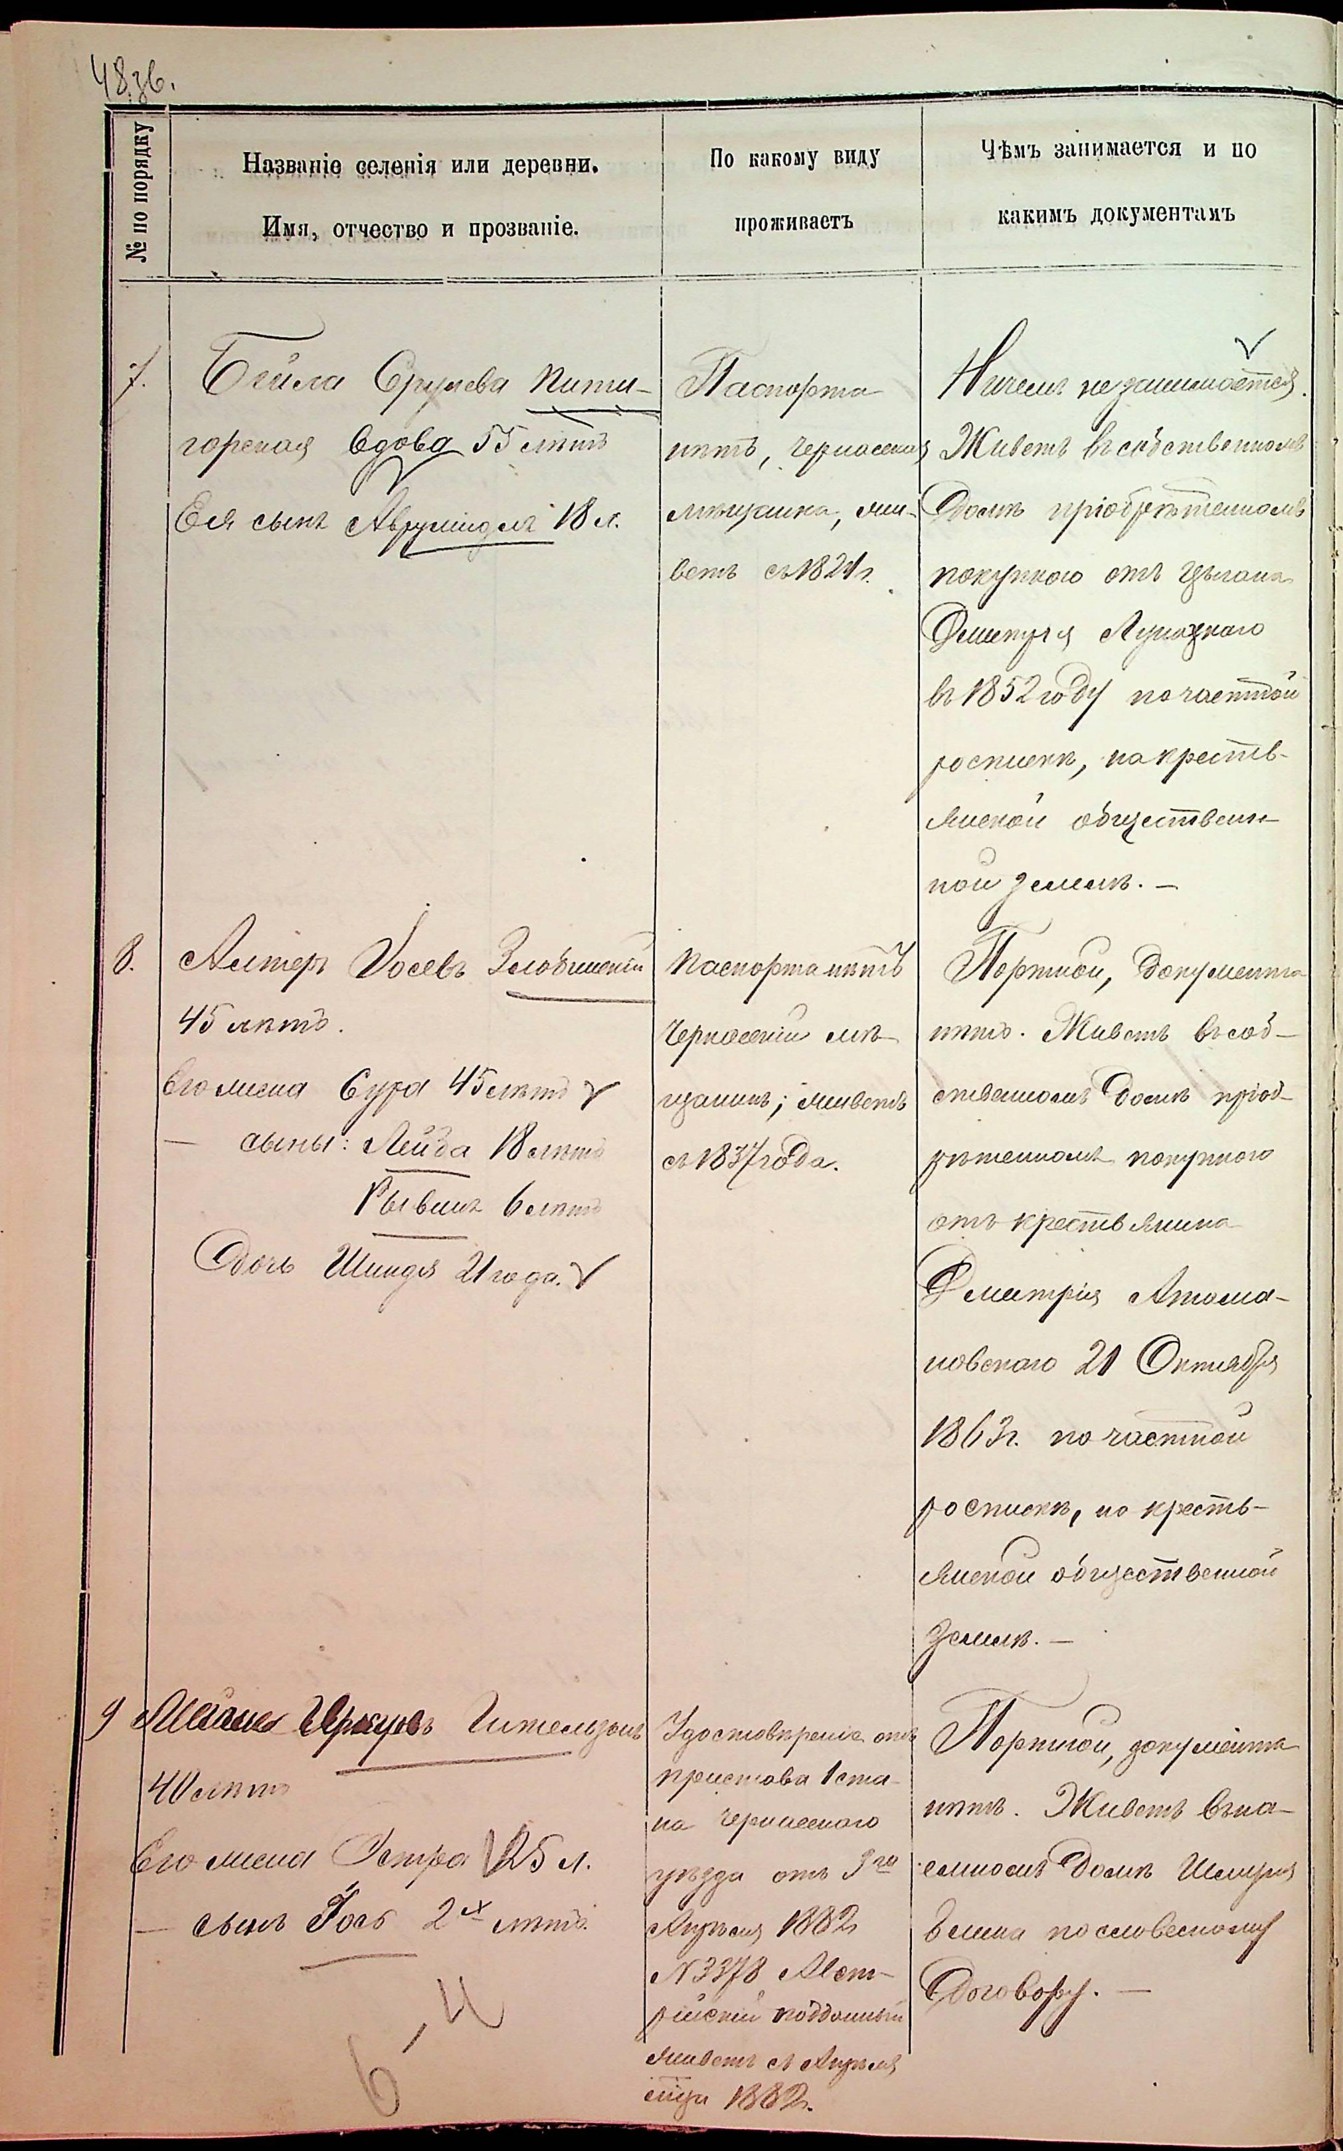 48 зв.
№ по порядку
Названіе селенія или деревни.
Имя, отчество и прозваніе.
По какому виду
проживаетъ
Чѣмъ занимается и по
какимъ документамъ
7.
Бейла Срулева Пяти-
горская вдова 55 лѣтъ
Ея сынъ 18 л.
Паспорта
нѣтъ, черкаская
мѣщанка, жи-
ветъ съ 1821 г.
Ничемъ не занимается.
Живетъ въ собственномъ
домѣ пріобрѣтенномъ
покупкою отъ цыгана
Дмитрія
въ 1852 году по частной
роспискѣ, на кресть-
янской обществен-
ной землѣ. —
8.
Алтеръ Іосевъ
45 лѣтъ.
Его жена Сура 45 лѣтъ
— сыны: Лейба 18 лѣтъ
6 лѣтъ
Дочь Шиндля 21 года.
Паспорта нѣтъ
Черкаскій мѣ-
щанинъ; живетъ
съ 1837 года.
Портной, документа
нѣтъ. Живетъ въ соб-
ственномъ домѣ пріоб-
рѣтенномъ покупкою
отъ крестьянина
Дмитрія Атома-
новскаго 21 Октября
1863 г. по частной
роспискѣ, на кресть-
янской общественной
землѣ. —
9
40 лѣтъ
Его жена Эстра 25 л.
— сынъ Іось 2-х лѣтъ.
Удостовѣреніе отъ
пристава 1 ста-
на Черкаскаго
уѣзда отъ 9го
Апрѣля 1882
N 3378 Авст-
рійскій подданный
живетъ съ Апрѣля
м-ца 1882 г.
Портной, документа
нѣтъ. Живетъ въ на-
емномъ домѣ Шмуля
по словесному
договору. —
6-4